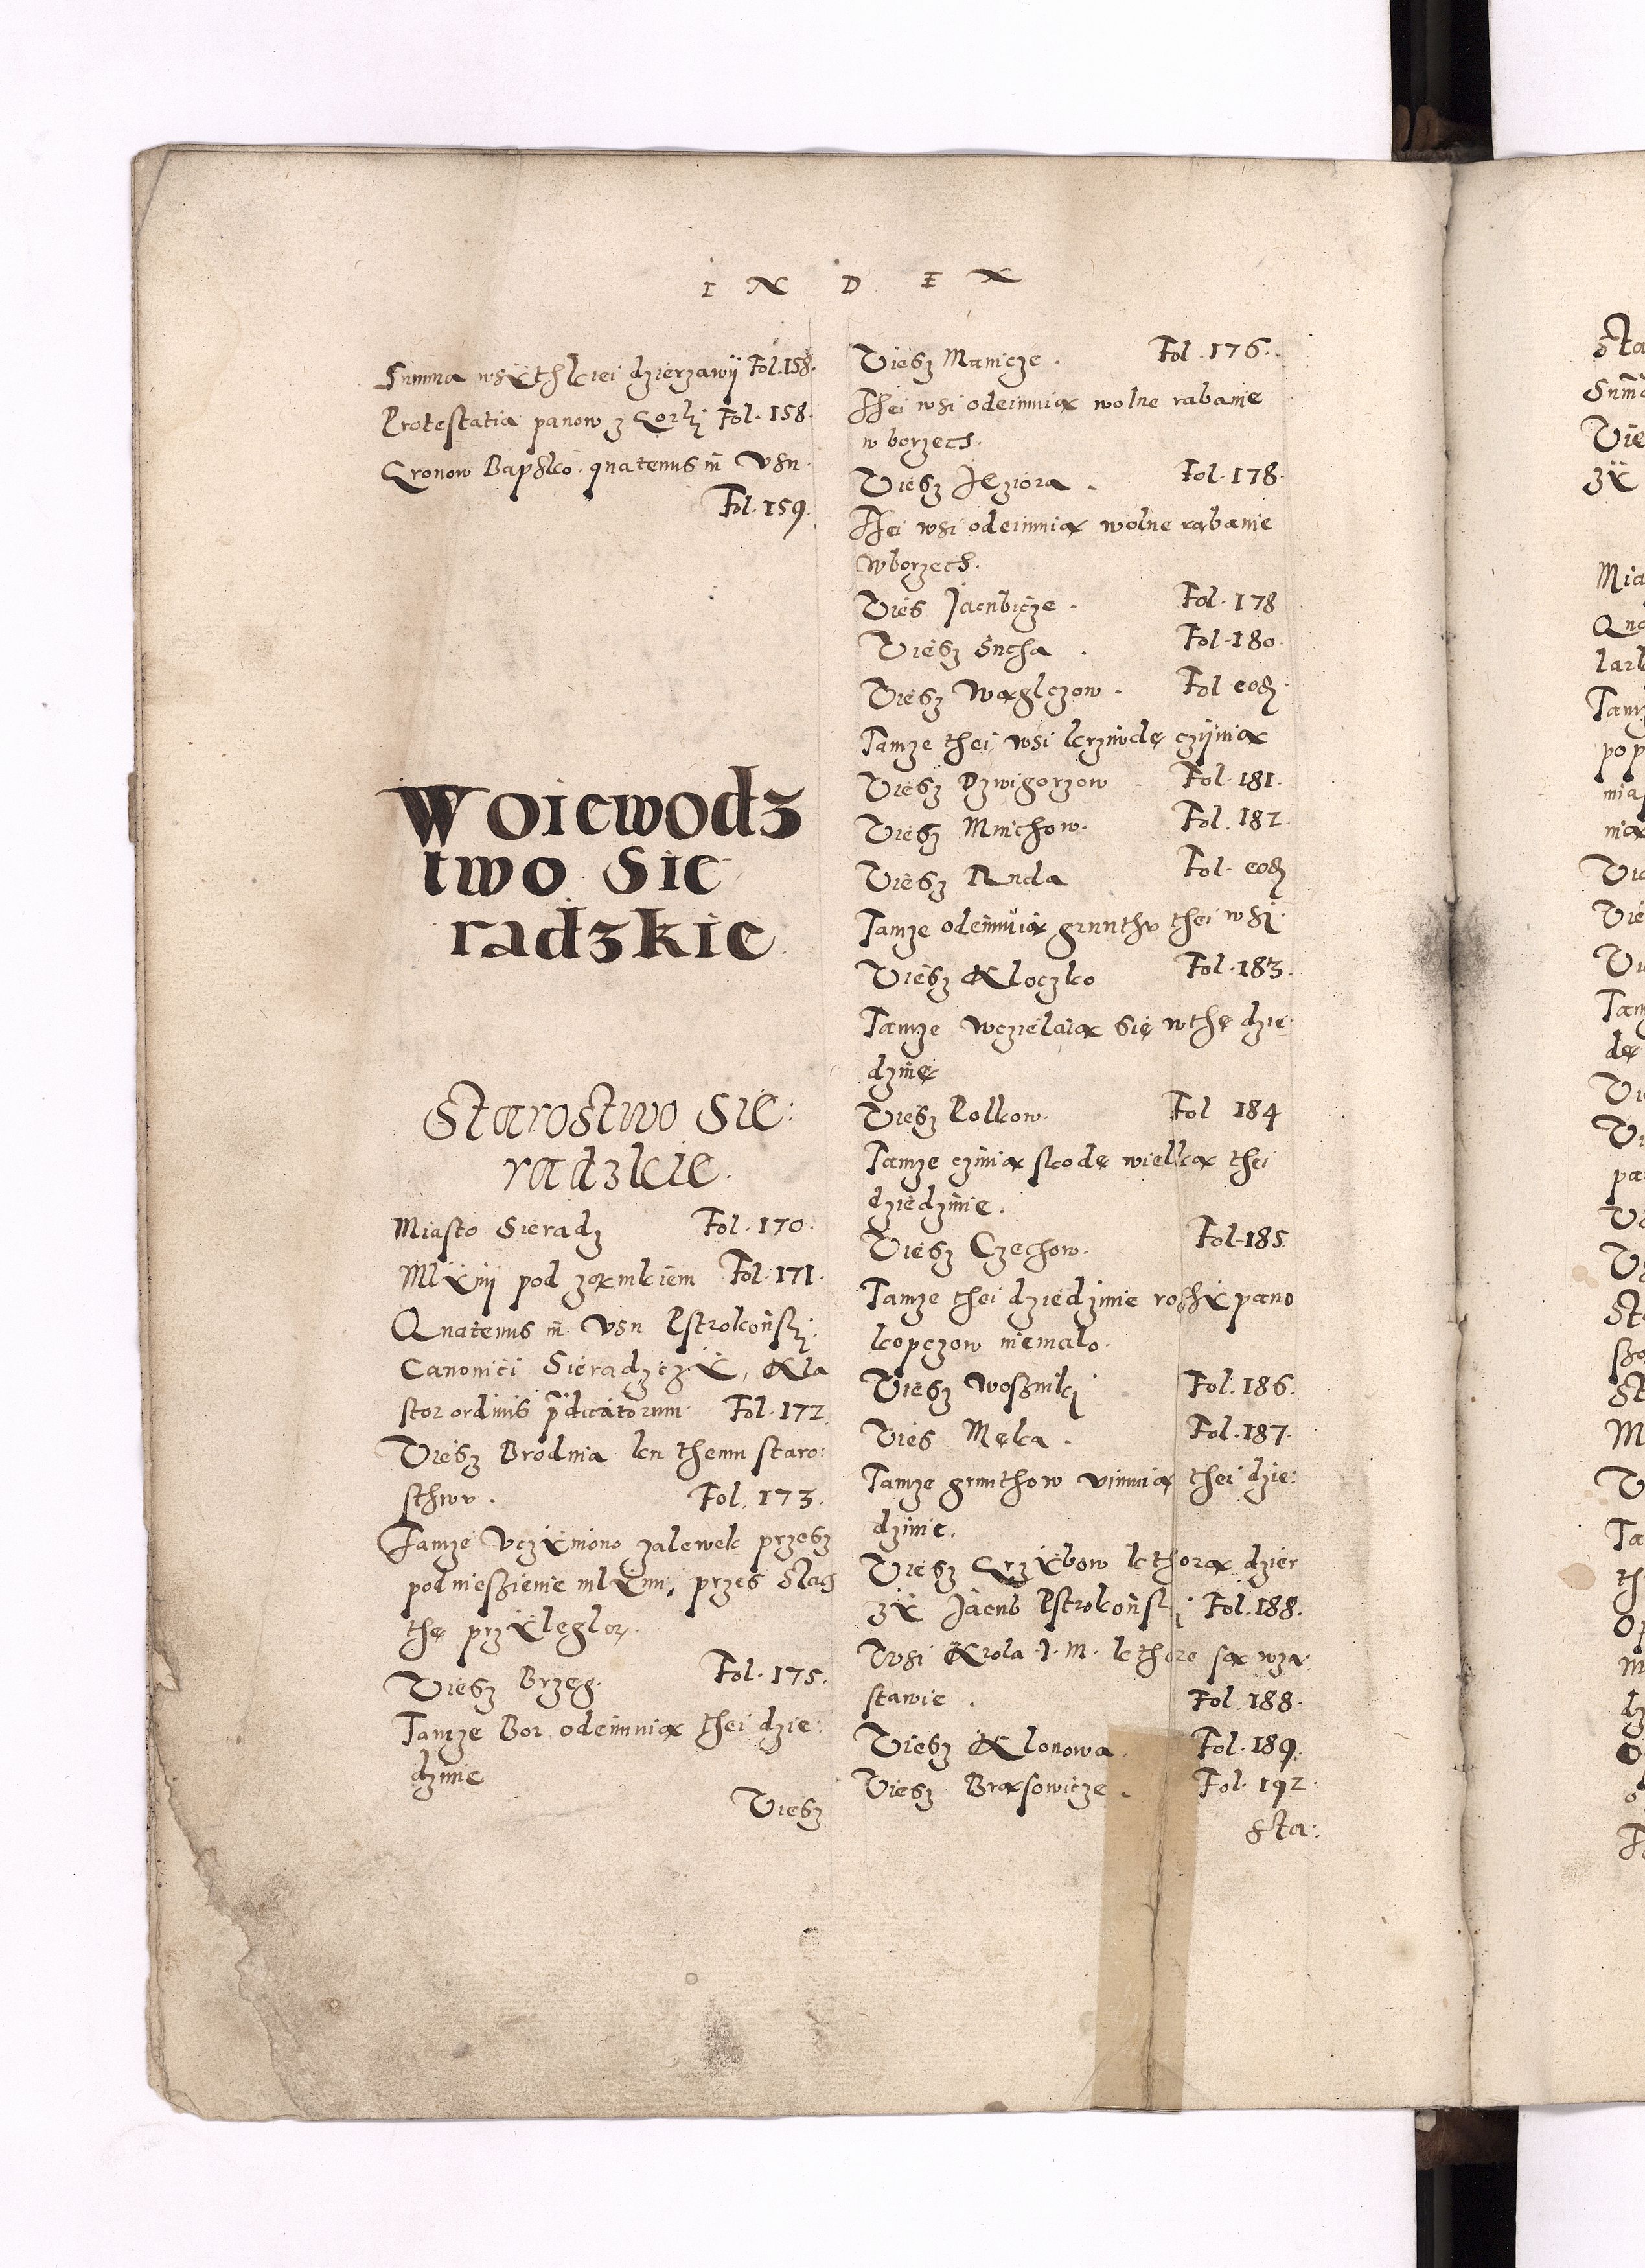 INDEX
Summa wsÿthkiei dzierzawÿ Fol. 158.
Protestatia panow z Fol. 158.
Gronow Bapsko. quatenus in vsu.
Fol. 159.
Woiewodz
two Sie
radzkie
Starostwo Sie:
radzkie.
Miasto Sieradz Fol. 170.
Mlÿnÿ pod zamkiem Fol. 171.
Quatenus in vsu Pstrokoński.
Canonici Sieradzczÿ, Kla
stor ordinis pdicatorum Fol. 172.
Viesz Brodnia ku themu staro:
sthwu. Fol. 173.
Tamze Vczÿniono zalewek przesz
podnieszienie mlÿnu, przes Slach
thę przÿległą.
Viesz Brzeg. Fol. 175.
Tamze Bor odeimuią thei dzie:
dzinie
Viesz
Viesz Manicze. Fol. 176.
Thei wsi odeimuią wolne rabanie
w borzech.
Viesz Jeziora. Fol. 178.
Thei wsi odeimuią wolne rąbanie
w borzech.
Vies Jacubicze. Fol. 178
Viesz Sucha. Fol. 180.
Viesz Wąglczow. Fol eod
Tamze thei wsi krziwdę czÿnią
Viesz Dzwigorzow Fol. 181.
Viesz Mnichow. Fol. 182.
Viesz Ruda Fol. eod
Tamze odeimuią grunthu thei wsi.
Viesz Kloczko Fol. 183.
Tamze wczielaią się w thę dzie
dzinę
Viesz Polkow. Fol 184
Tamze czinią skodę wielką thei
dziedzinie.
Viesz Czechow. Fol. 185.
Tamze thei dziedzinie roskÿpano
kopczow niemalo.
Viesz Woszniki Fol. 186.
Vies Męka. Fol. 187.
Tamze grunthow vimuią thei dzie:
dzinie.
Viesz Grzÿbow kthorą dzier
zÿ Jacub Pstrokoński Fol. 188.
Wsi Krola J. M. kthore są w za
stawie. Fol. 188.
Viesz Klonowa. Fol. 189.
Viesz Brąsowicze. Fol. 192.
Sta: